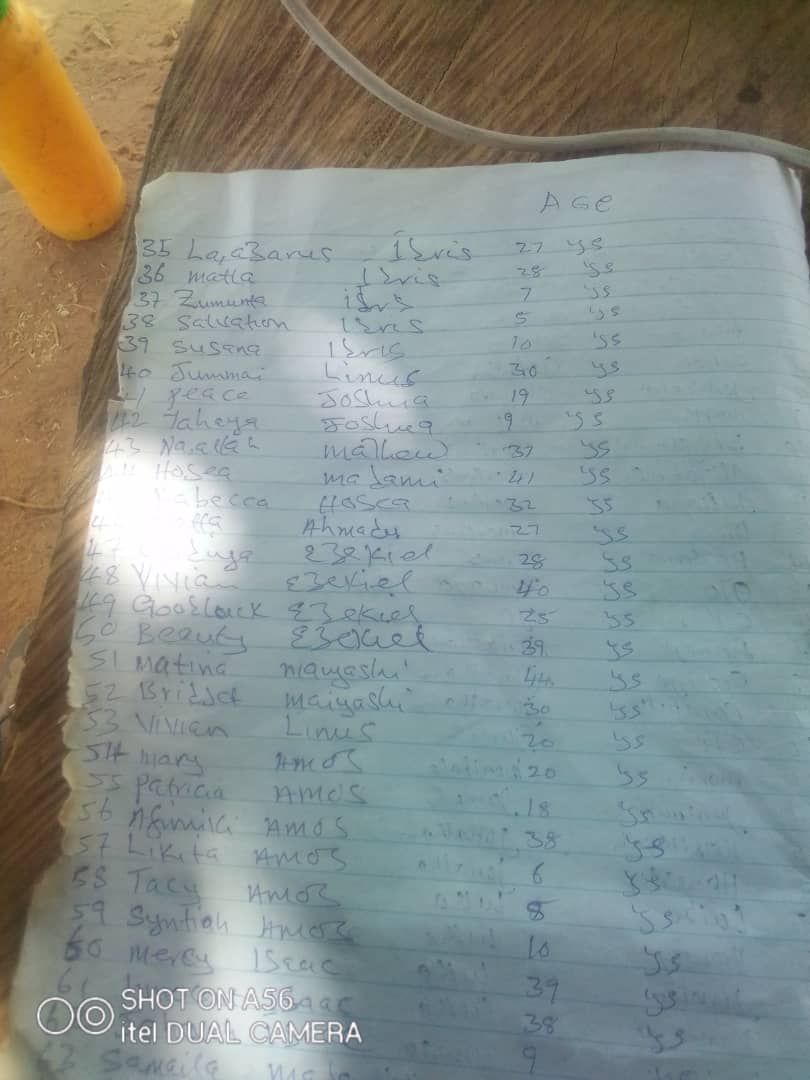 AGE
35 La,azarus Idris 27 ys
36 matta Idris 28 ys
37 Zumunta idrs 7 ys
38 Salvation Idris 5 ys
39 Susana Idris 10 ys
40 Jummai Linus 30 ys
Peace Joshua 19 ys
42 Jahaya Joshua 9 ys
43 mathew 37 ys
Hosea madami 41 ys
Hosea 32 ys
Ahmadu 27 ys
47 Ezekiel 28 ys
48 Vivian Ezekiel 40 ys
49 Goodluck Ezekiel 25 ys
50 Beauty Ezekiel 39 ys
51 Matina maiyashi 44 ys
52 Bridget maiyashi 30 ys
53 Vivian Linus 20 ys
54 mary AMOS 20 ys
55 Patricia AMOS 18 ys
56 AMOS 38 ys
57 Likita AMOS 6 ys
58 Tacy AMOS 8 ys
59 Syntiah AMOS 10 ys
60 mercy Iseac 39 ys
61 38 ys
63 Samaila 9
SHOT ON A56
itel DUAL CAMERA